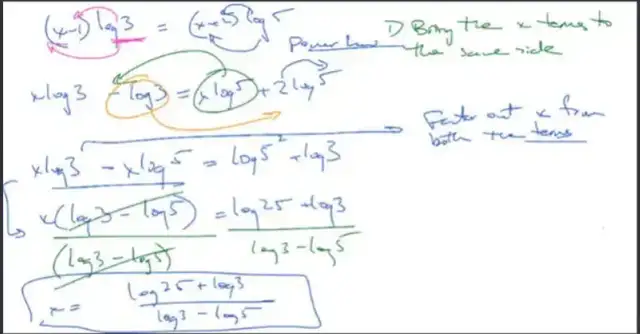 (x-1) log 3 = (x+2) log 5
Power law
1) Bring the x terms to
the same side
x log 3 - log 3 = x log 5 + 2 log 5
Factor out x from
both the terms
x log 3 - x log 5 = log 5² + log 3
x (log 3 - log 5) = log 25 + log 3
(log 3 - log 5) log 3 - log 5
x = log 25 + log 3
log 3 - log 5